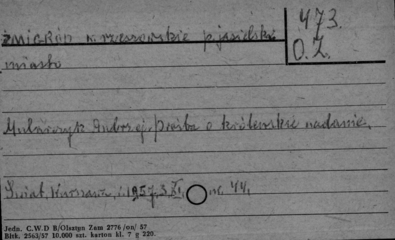 473.
O.Z.
ŻMIGRÓD w. rzeszowskie p. jasielski
miasto
Mularczyk Andrzej, Prośba o królewskie nadanie.
Świat, Warszawa, r. 1957. 3.XI. nr. 44.
Jedn. C.W.D B/Olsztyn Zam 2776 /on/ 57
Blsk. 2563/57 10.000 szt. karton kl. 7 g 220.